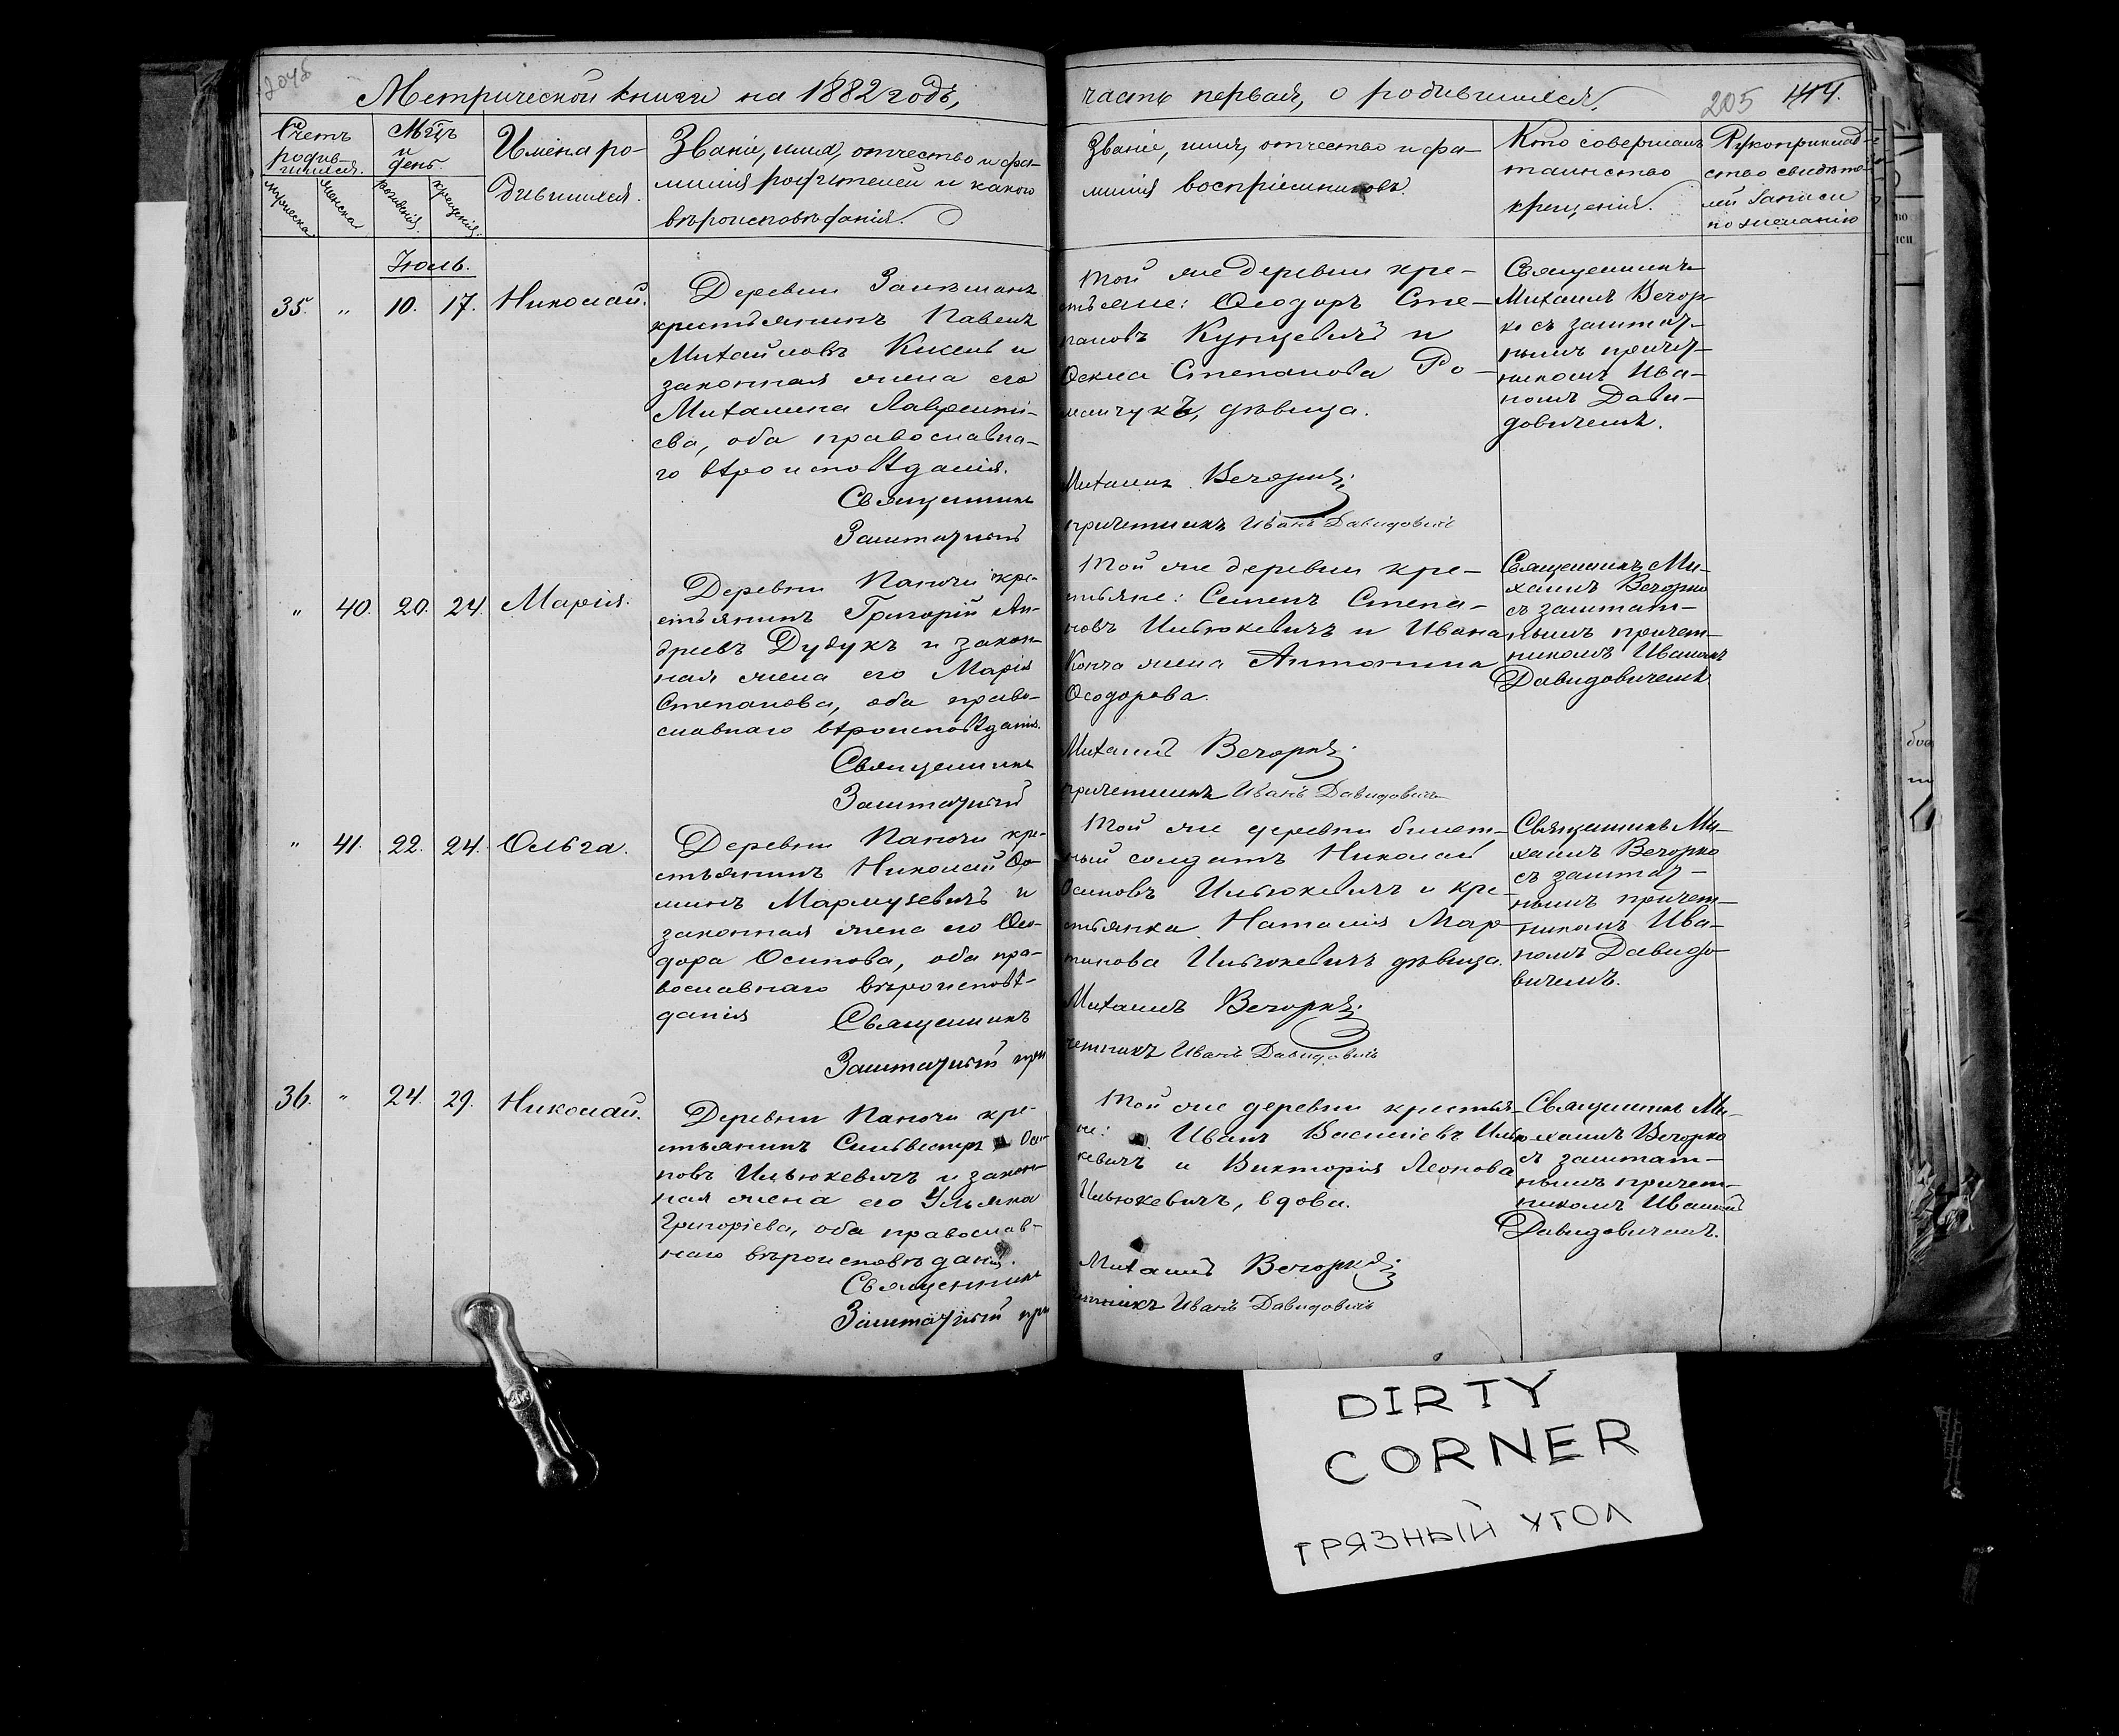 Метрической книги на 1882 годъ,
часть первая, о родившихся.
205
Счетъ родив-
шихся.
Мѣсяцъ
и
день.
Имена ро-
дившихся.
Званіе, имя, отчество и фа-
милія родителей и какого
вѣроисповѣданія.
Званіе, имя, отчество и фа-
милія воспріемниковъ.
Кто совершалъ
таинство
крещенія.
Рукоприклад-
ство свидѣте-
лей записи
по желанію
мужеска
женска
рожденія.
крещенія.
Іюль.
35. " 10. 17. Николай.
Деревни
крестьянинъ Павелъ
Михайловъ Кисель и
законная жена его
Михалина Лавренті-
ева, оба православна-
го вѣроисповѣданія.
Той же деревни кре-
стьяне: Ѳеодоръ Сте-
пановъ Кунцевичъ и
Степанова Ро-
манчукъ, дѣвица.
Священникъ
Михаилъ Вечор-
ко съ заштат-
нымъ причет-
никомъ Ива-
номъ Дави-
довичемъ.
Священникъ Михаилъ Вечорко
Заштатный причетникъ Иванъ Давидовичъ
" 40. 20. 24. Марія.
Деревни Паночи кре-
стьянинъ Григорій Ан-
дреевъ Дудукъ и закон-
ная жена его Марія
Степанова, оба право-
славнаго вѣроисповѣданія.
Той же деревни кре-
стьяне: Семенъ Степа-
новъ Ильюкевичъ и Ивана
жена Антонина
Ѳеодорова.
Священникъ Ми-
хаилъ Вечорко
съ заштат-
нымъ причет-
никомъ Иваномъ
Давидовичемъ
Священникъ Михаилъ Вечорко
Заштатный причетникъ Иванъ Давидовичъ
" 41. 22. 24. Ольга.
Деревни Паночи кре-
стьянинъ Николай Ѳо-
минъ и
законная жена его Ѳео-
дора Осипова, оба пра-
вославнаго вѣроисповѣ-
данія
Той же деревни билет-
ный солдатъ Николай
Осиповъ Ильюкевичъ и кре-
стьянка Наталія Мар-
тинова Ильюкевичъ дѣвица.
Священникъ Ми-
хаилъ Вечорко
съ заштат-
нымъ причет-
никомъ Ива-
номъ Давидо-
вичемъ.
Священникъ Михаилъ Вечорко
Заштатный причетникъ Иванъ Давидовичъ
36. " 24. 29. Николай.
Деревни Паночи кре-
стьянинъ Сильвестръ Оси-
повъ Ильюкевичъ и закон-
ная жена его Ульяна
Григоріева, оба православ-
наго вѣроисповѣданія.
Той же деревни крестья-
не: Иванъ Василіевъ Илью-
кевичъ и Викторія Леонова
Ильюкевичъ, вдова.
Священникъ Ми-
хаилъ Вечорко
съ заштат-
нымъ причет-
никомъ Иваномъ
Давидовичемъ.
Священникъ Михаилъ Вечорко
Заштатный причетникъ Иванъ Давидовичъ
DIRTY
CORNER
ГРЯЗНЫЙ УГОЛ